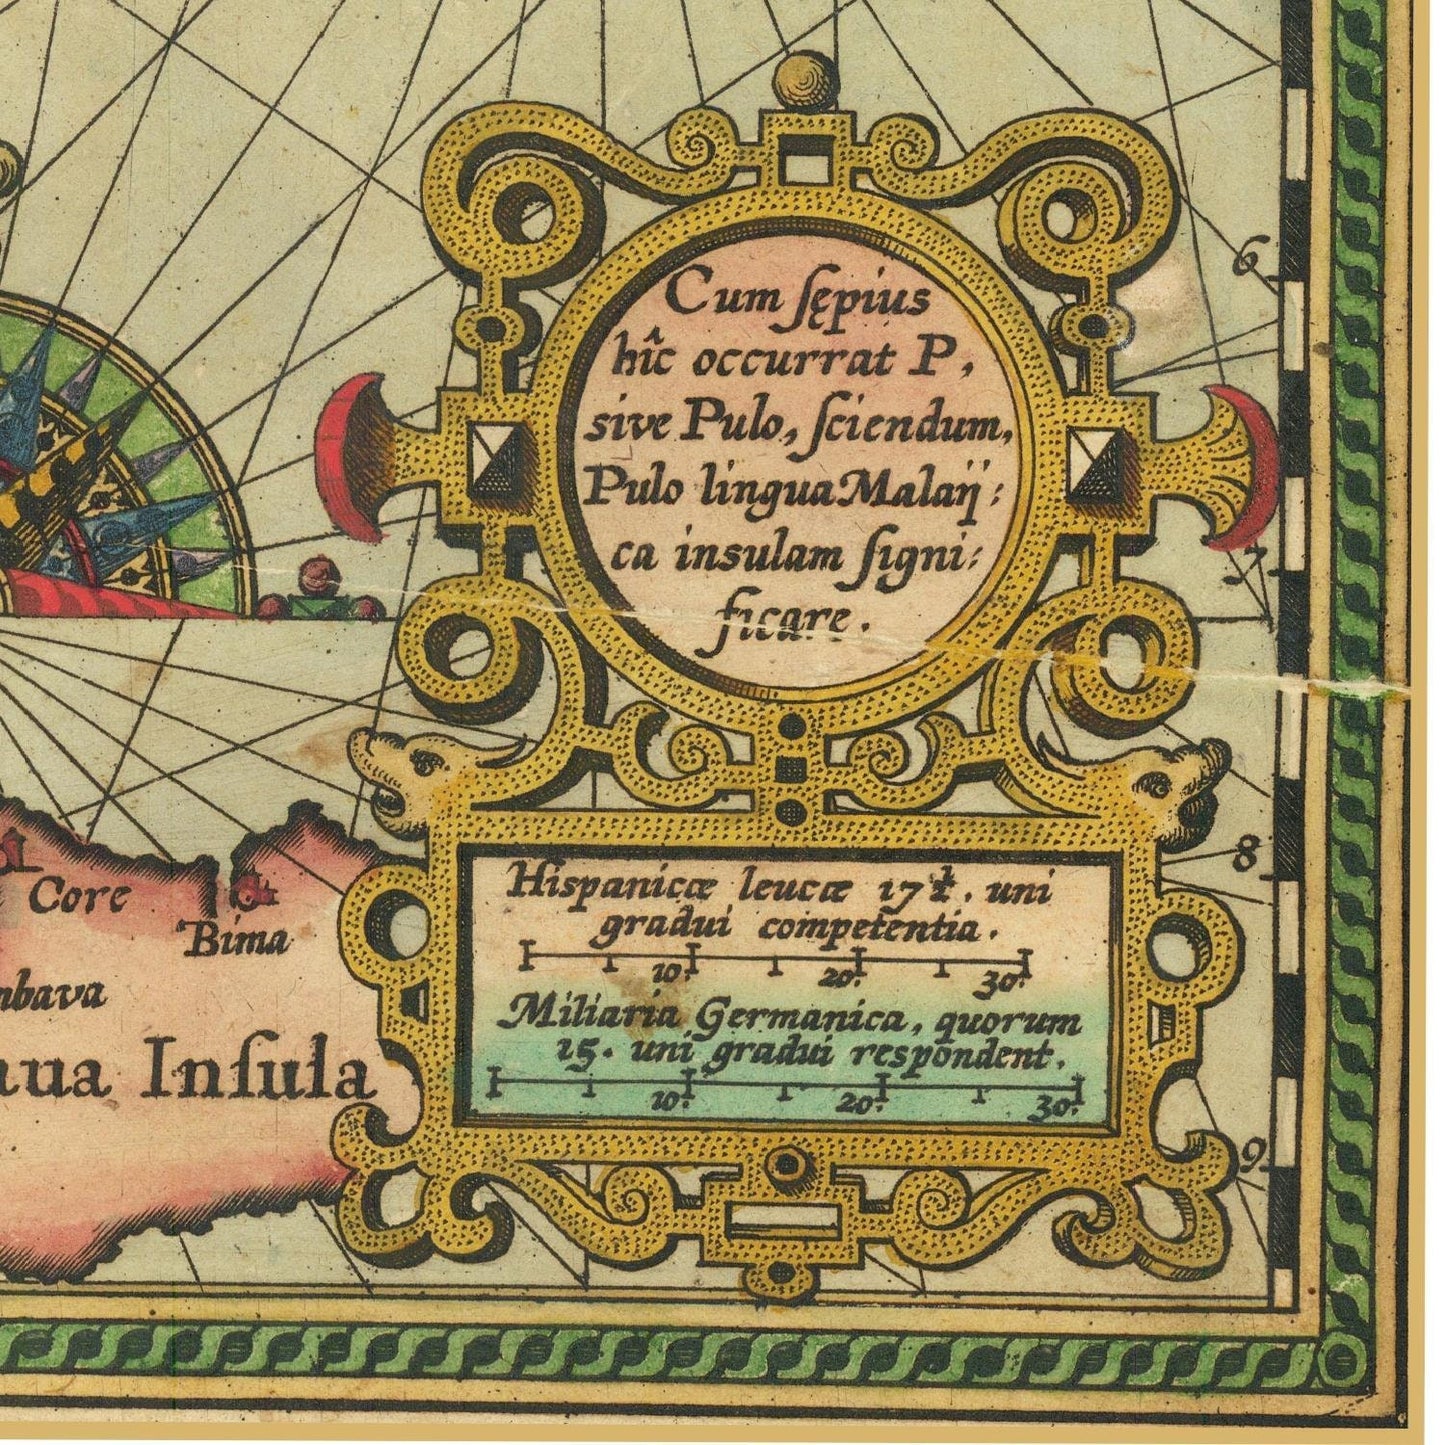 Cum ſępius
hîc occurrat P,
sive Pulo, ſciendum,
Pulo lingua Malaÿ:
ca insulam ſigni:
ficare.
6
7
8
9
Hispanicæ leucæ 17½. uni
gradui competentia.
10. 20. 30.
Miliaria Germanica, quorum
15. uni gradui respondent.
10. 20. 30.
Core
Bima
nbava
aua Inſula